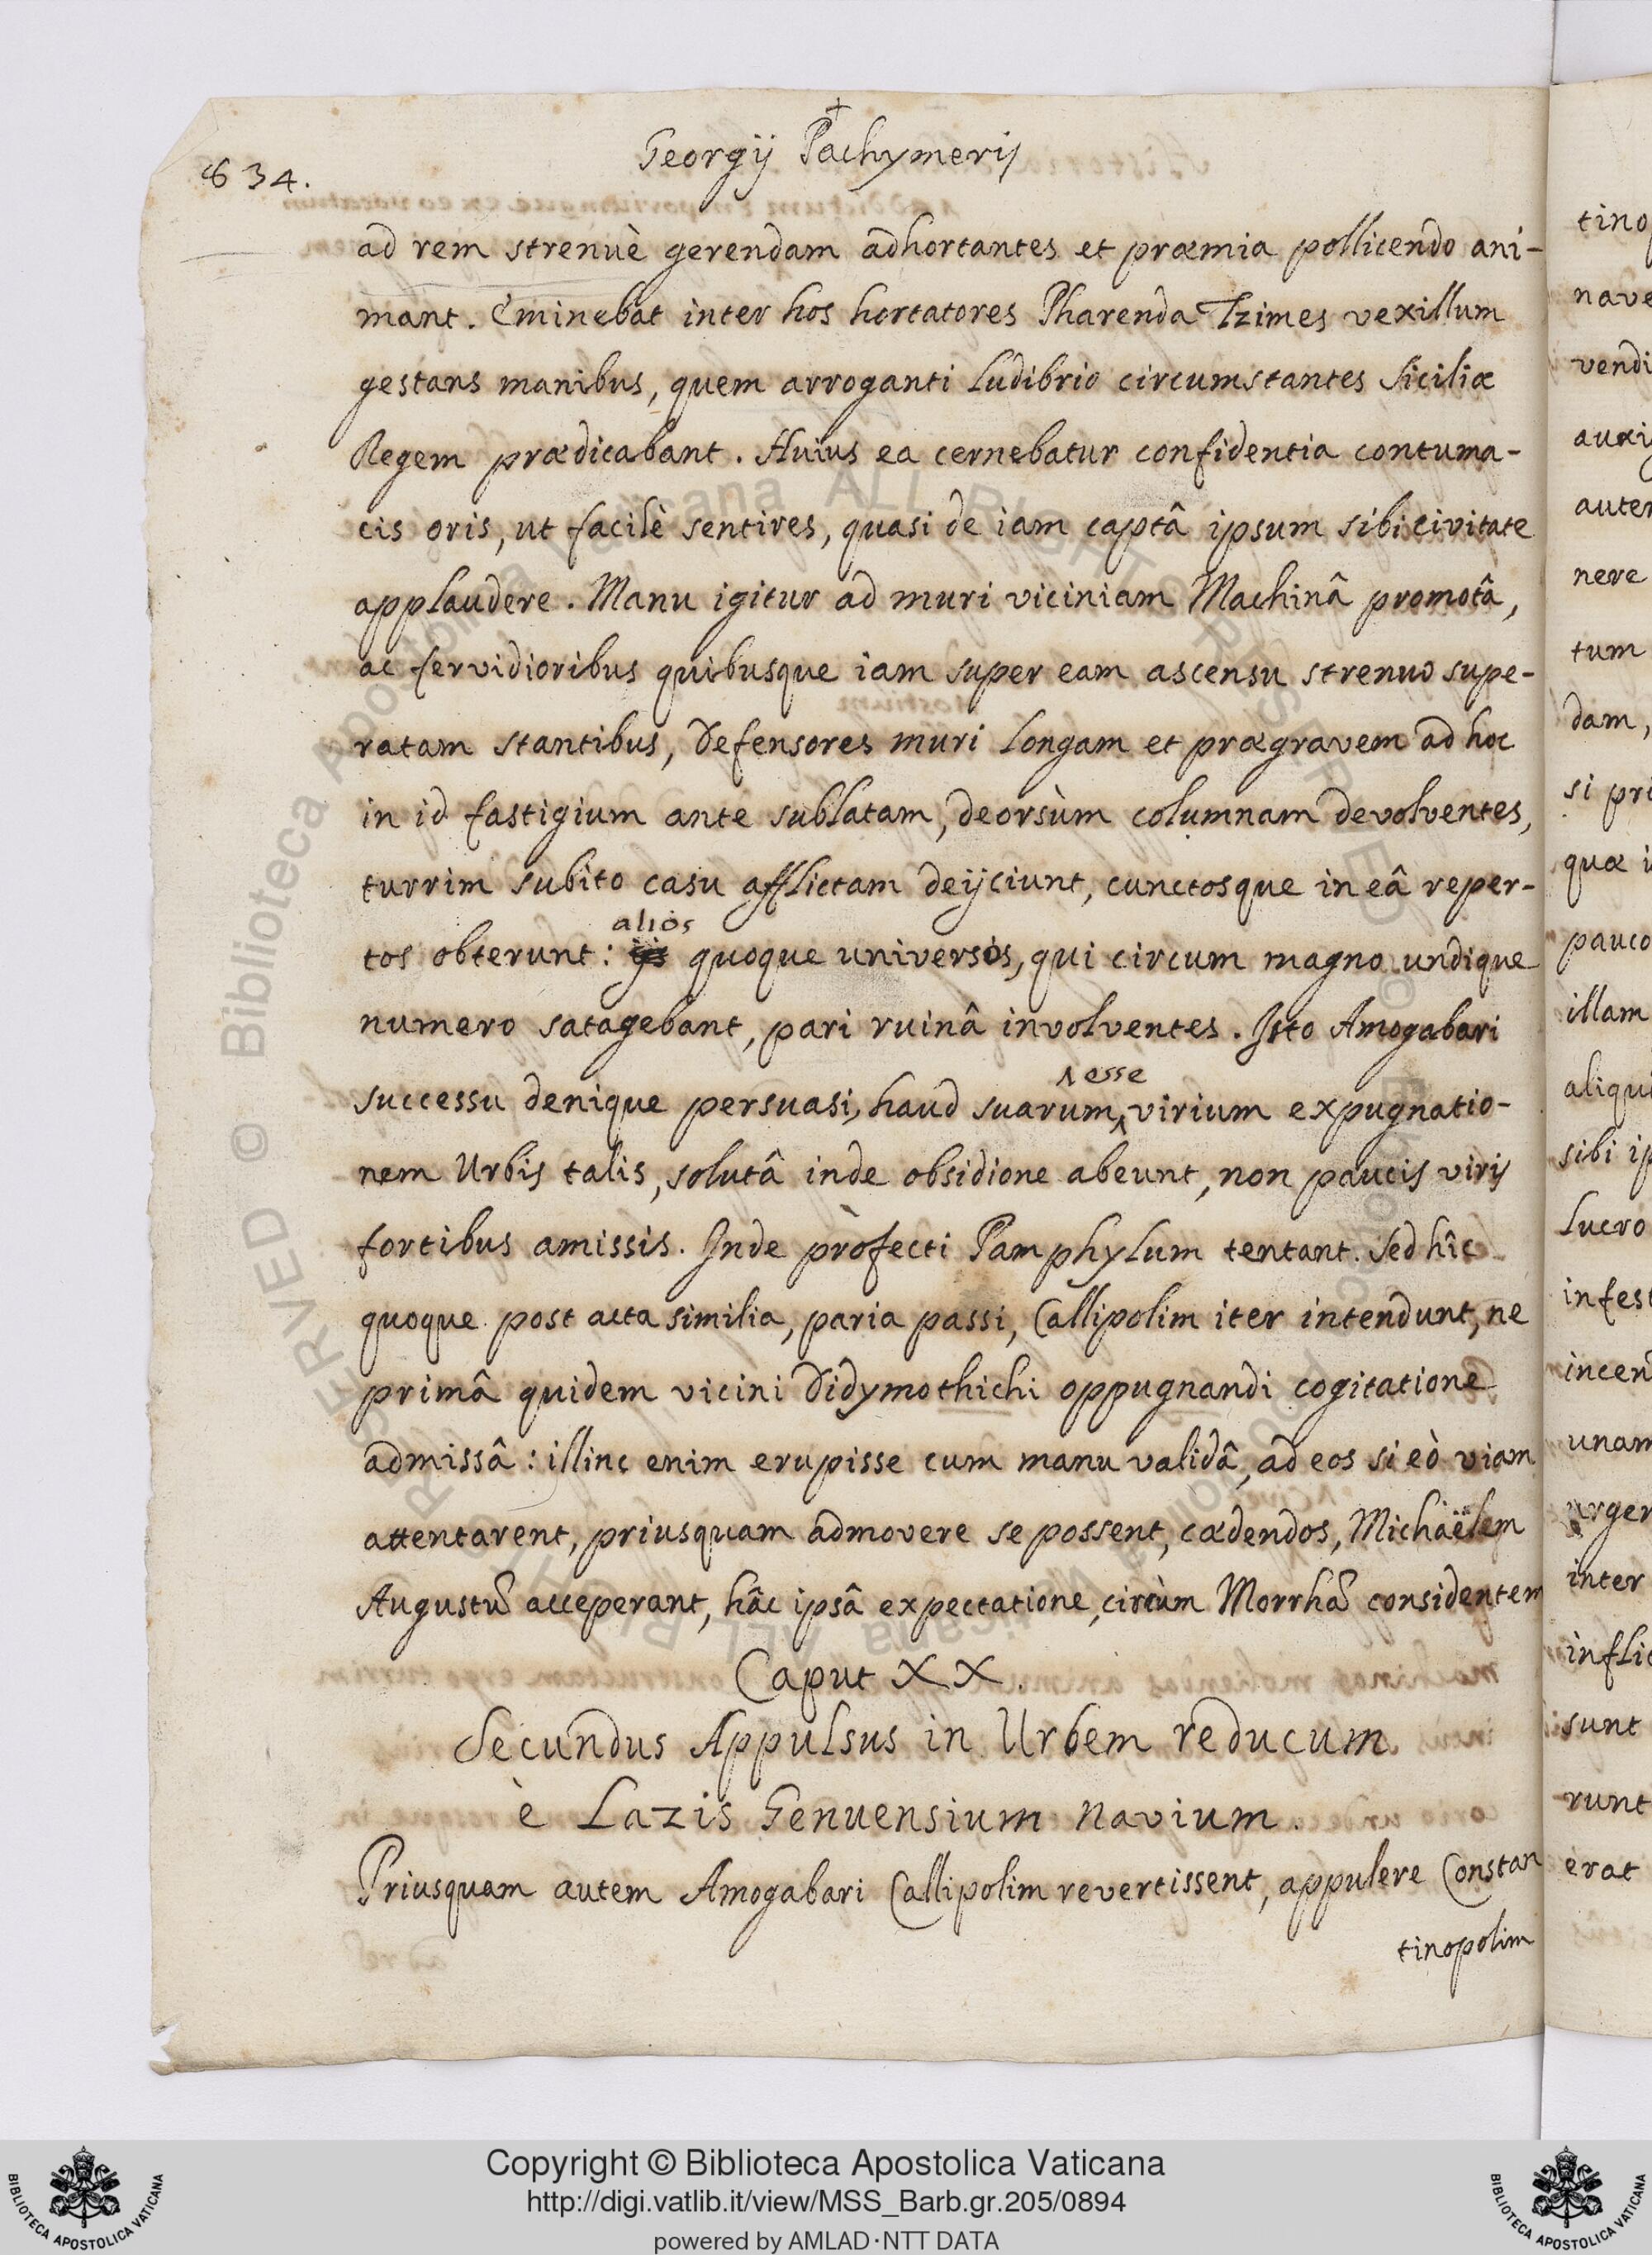 634.
Georgij Pachymeris
ad rem strenuè gerendam adhortantes et præmia pollicendo ani-
mant. Eminebat inter hos hortatores Pharenda Tzimes vexillum
gestans manibus, quem arroganti ludibrio circumstantes Siciliæ
Regem prædicabant. Huius ea cernebatur confidentia contuma-
cis oris, ut facilè sentires, quasi de iam captâ ipsum sibi civitate
applaudere. Manu igitur ad muri viciniam Machinâ promotâ,
ac fervidioribus quibusque iam super eam ascensu strenuo supe-
ratam stantibus, Defensores muri longam et prægravem ad hoc
in id fastigium ante sublatam, deorsùm columnam devolventes,
turrim subito casu afflictam deijciunt, cunctosque in eâ reper-
alios
tos obterunt: quoque universos, qui circum magno undique
numero satagebant, pari ruinâ involventes. Isto Amogabari
esse
successu denique persuasi, haud suarum virium expugnatio-
nem Urbis talis, solutâ inde obsidione abeunt, non paucis viris
fortibus amissis. Inde profecti Pamphylum tentant. Sed hîc
quoque post acta similia, paria passi, Callipolim iter intendunt, ne
primâ quidem vicini Didymothichi oppugnandi cogitatione
admissâ: illinc enim erupisse cum manu validâ, ad eos si eò viam
attentarent, priusquam admovere se possent, cædendos, Michaëlem
Augustũ acceperant, hâc ipsâ expectatione, circùm Morrhã considentem
Caput XX.
Secundus Appulsus in Urbem reducum
è Lazis Genuensium Navium.
Priusquam autem Amogabari Callipolim revertissent, appulere Constan
tinopolim
tino
nave
vendi
auxi
auter
nere
tum
dam,
si pri
quæ i
pauco
illam
aliqui
sibi ip
Lucro
infest
incen
unam
urger
inter
inflic
sunt
runt
erat
© Biblioteca Apostolica Vaticana ALL RIGHTS RESERVED
Copyright © Biblioteca Apostolica Vaticana
http://digi.vatlib.it/view/MSS_Barb.gr.205/0894
powered by AMLAD·NTT DATA
BIBLIOTECA APOSTOLICA VATICANA
BIBLIOTECA APOSTOLICA VATICANA